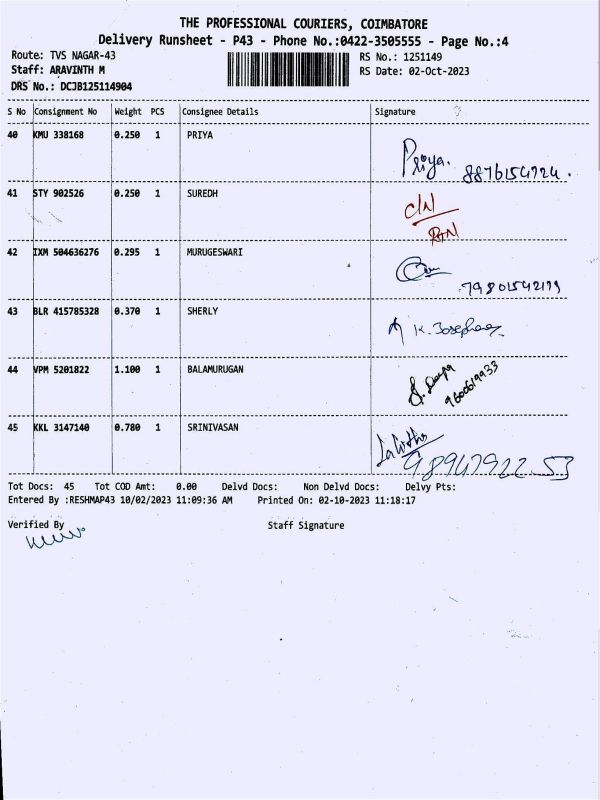 THE PROFESSIONAL COURIERS, COIMBATORE
Delivery Runsheet - P43 - Phone No.:0422-3505555 - Page No.:4
Route: TVS NAGAR-43 RS No.: 1251149
Staff: ARAVINTH M RS Date: 02-Oct-2023
DRS No.: DCJB125114904
S No Consignment No Weight PCS Consignee Details Signature
40 KMU 338168 0.250 1 PRIYA
Priya. 8876154924.
41 STY 902526 0.250 1 SUREDH
C/N
RTN
42 IXM 504636276 0.295 1 MURUGESWARI
43 BLR 415785328 0.370 1 SHERLY
K. Josephine
44 VPM 5201822 1.100 1 BALAMURUGAN
S. Deepa
9600619933
45 KKL 3147140 0.780 1 SRINIVASAN
Lalitha
9894792253
Tot Docs: 45 Tot COD Amt: 0.00 Delvd Docs: Non Delvd Docs: Delvy Pts:
Entered By :RESHMAP43 10/02/2023 11:09:36 AM Printed On: 02-10-2023 11:18:17
Verified By Staff Signature